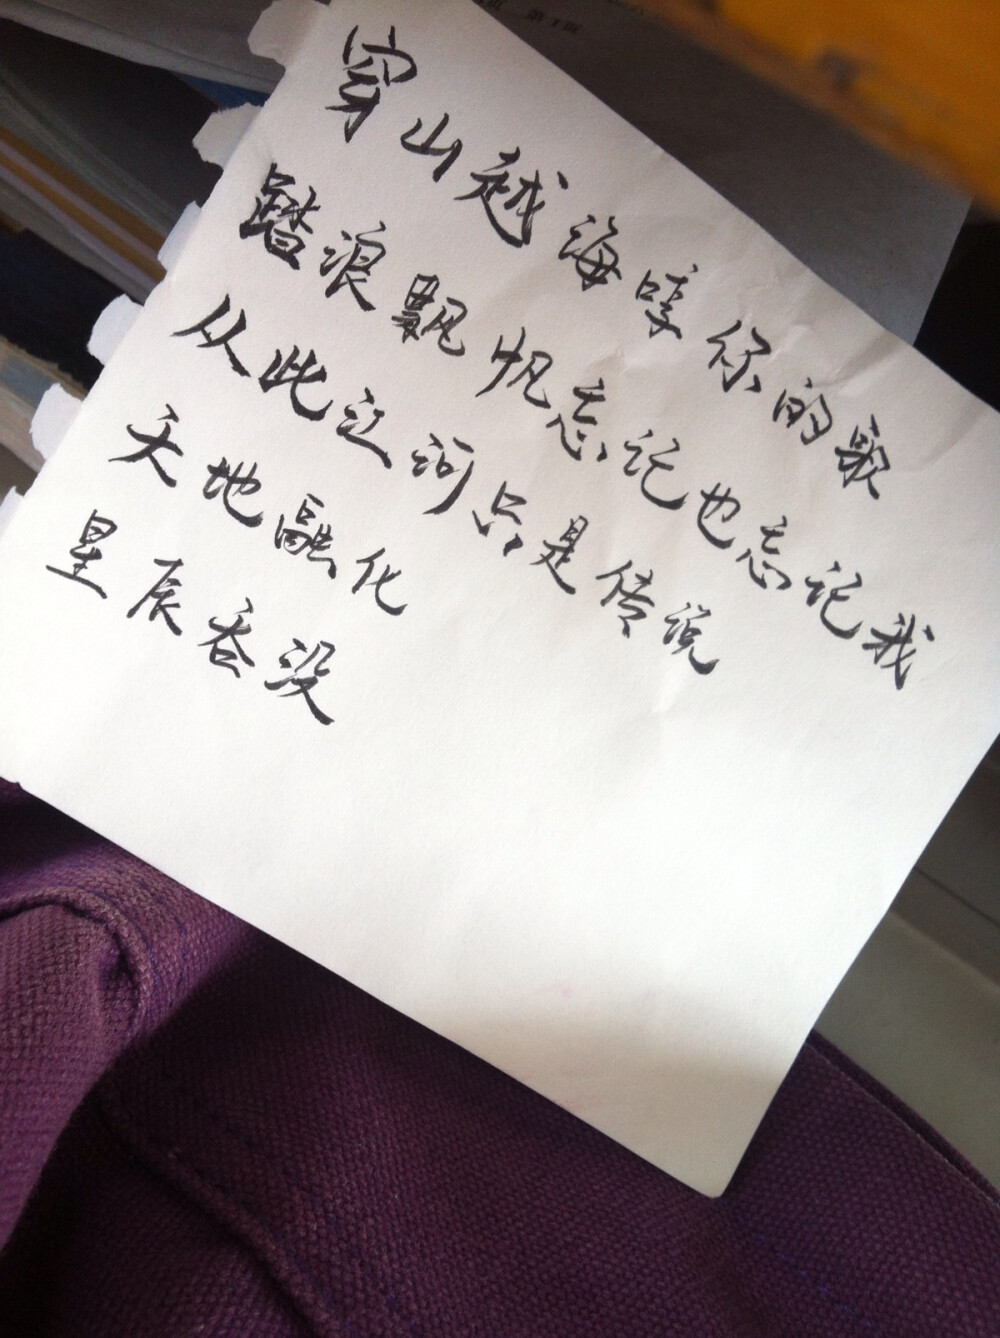 第1页
穿山越海哼你的歌
踏浪飘帆忘记也忘记我
从此江河只是传说
天地融化
星辰吞没